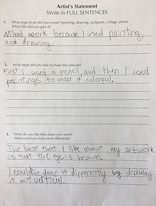 Artist's Statement
Write in FULL SENTENCES
1. What type of art did you create? (painting, drawing, sculpture, collage, print)
What title did you give it?
Mixed work because I used painting,
and drawing.
2. What steps did you take to make this artwork?
First I used a pencil and then I used
paintings to make it colorful.
3. What do you like best about your work?
What could you have done differently?
The best that I like about my artwork
is that the eye is brown.
I could've done it differently by drawing
it not vertical.